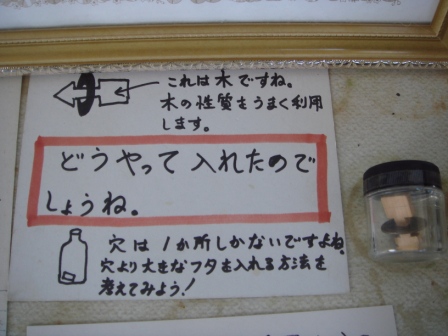 これは木ですね。
木の性質をうまく利用
します。
どうやって入れたので
しょうね。
穴は1か所しかないですよね。
穴より大きなフタを入れる方法を
考えてみよう!